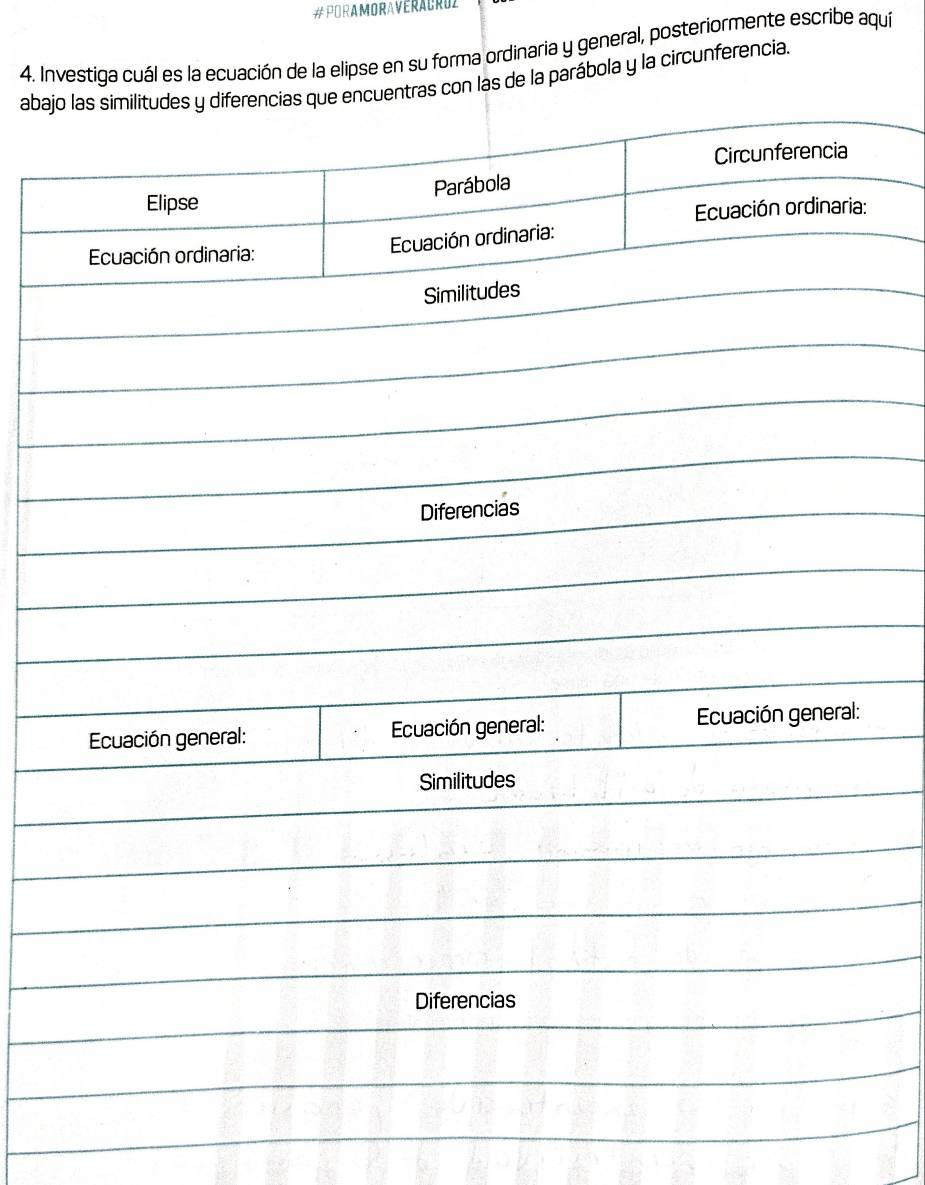 #PORAMORAVERACRUZ
4. Investiga cuál es la ecuación de la elipse en su forma ordinaria y general, posteriormente escribe aquí
abajo las similitudes y diferencias que encuentras con las de la parábola y la circunferencia.
Elipse Parábola Circunferencia
Ecuación ordinaria: Ecuación ordinaria: Ecuación ordinaria:
Similitudes
Diferencias
Ecuación general: Ecuación general: Ecuación general:
Similitudes
Diferencias